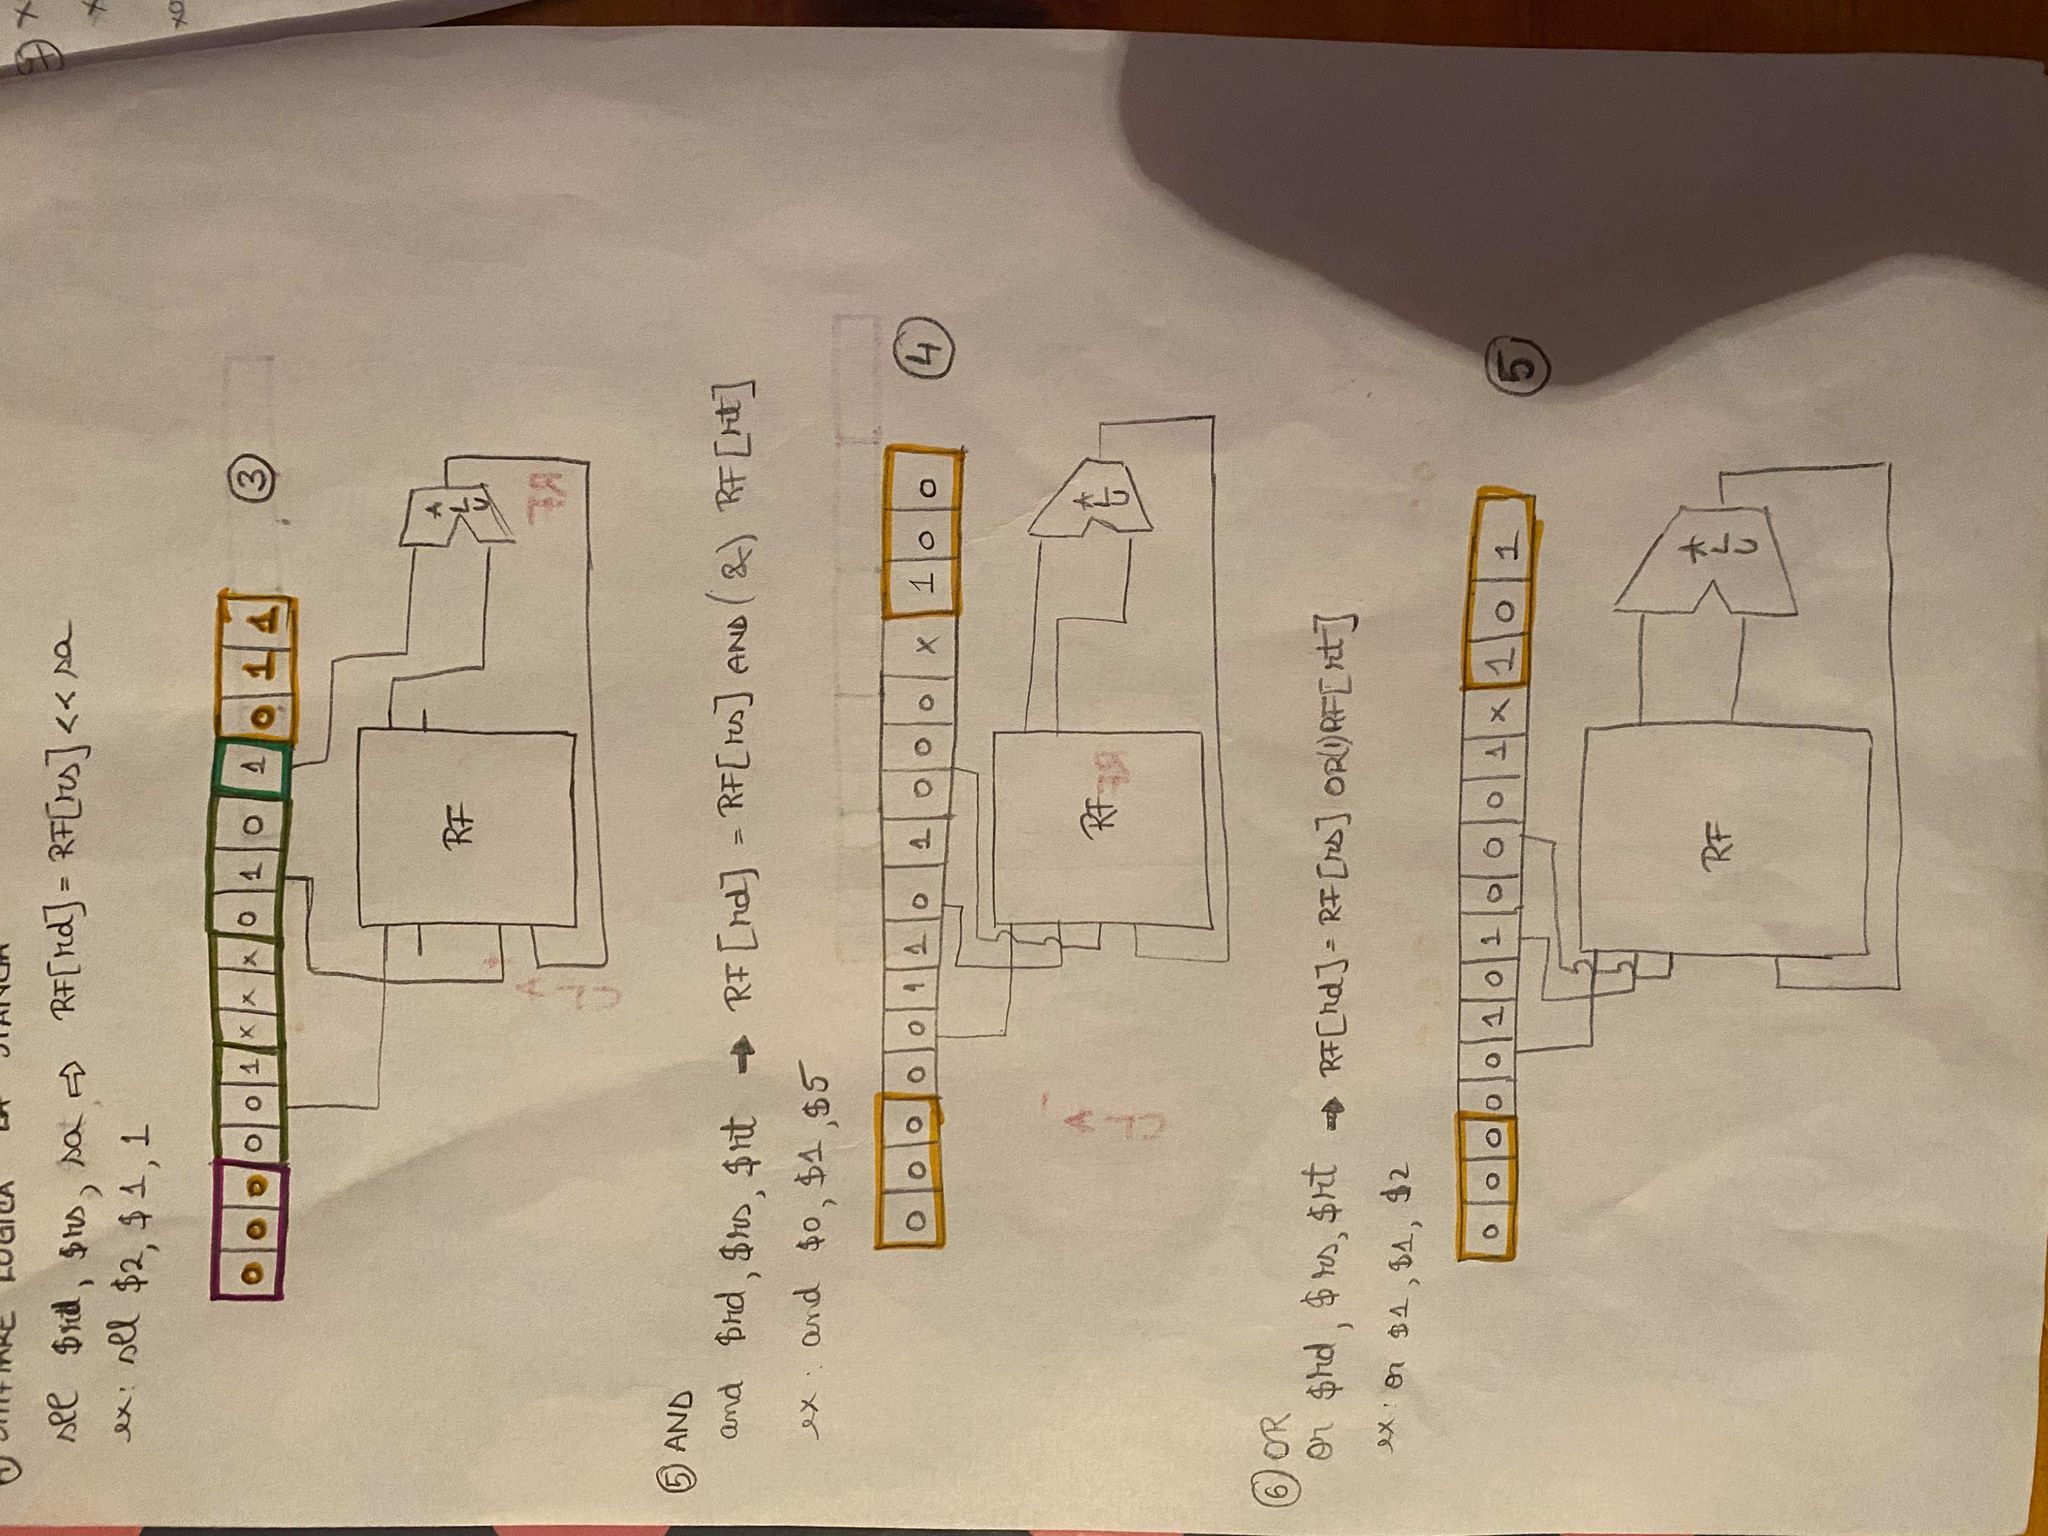 ④ SHIFTARE LOGICA LA STANGA
sll $rd, $rs, sa ⇨ RF[rd] = RF[rs] << sa
ex: sll $2, $1, 1
0 0 0 0 0 1 x x x 0 1 0 1 0 1 1 ③
RF
ALU
⑤ AND
and $rd, $rs, $rt → RF[rd] = RF[rs] AND (&) RF[rt]
ex: and $0, $1, $5
0 0 0 0 0 1 1 0 1 0 0 0 x 1 0 0 ④
RF
ALU
⑥ OR
or $rd, $rs, $rt → RF[rd] = RF[rs] OR(|) RF[rt]
ex: or $1, $1, $2
0 0 0 0 0 1 0 1 0 0 0 1 x 1 0 1 ⑤
RF
ALU
⑦ x